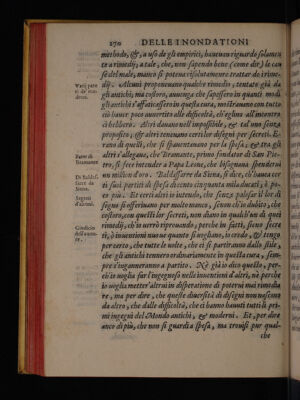 270 DELLE INONDATIONI
methodo, &, a uso de gli empirici, haueuan riguardo solamen
te a rimedij; a tale, che, non sapendo bene (come dir) le cau
se del male, manco si poteua risolutamente trattar de i rime
dij. Alcuni proponeuano qualche rimedio, tentato già da
gli antichi; ma costoro, ancora che sapessero in quanti modi
gli antichi s'affaticassero in questa cura, mostrauano con tutto
ciò hauer poco auuertito alle difficoltà, ch'eglino all'incontro
ci hebbero. Altri dauano nell'impossibile, & tal'uno senza
proposito; & altri teneuano certi lor disegni per secreti. E-
rano di quelli, che si spauentauano per la spesa; & tra gli
altri s'allegaua, che Bramante, primo fondator di San Pie-
tro, si fece intender a Papa Leone, che bisognaua spenderui
un million d'oro. Baldassarre da Siena, si dice, c'hauea cer
ti suoi partiti di spesa de cento cinquanta mila ducati; ò po-
co più. Et certi altri s'intende, che, senza palesar il lor di
segno si offeriuano per molto manco; senon ch'io dubito, che
costoro, con quelli lor secreti, non diano in qualch'un di quei
rimedij, ch'io uerrò riprouando; perche in fatti, sieno secre
ti, ò inuentioni nuoue quanto si uogliano, io credo, & tengo
per certo, che tutte le uolte, che ci si partiranno dallo stile,
che gli antichi tennero ordinariamente in questa cura, sem-
pre s'inganneranno a partito. Ne già io dico quello, per-
ch'io uoglia far l'ingegnoso nelle inuentioni d'altri, nè perche
io uoglia metter'altrui in disperatione di poterui mai rimedia
re, ma per dire, che queste diuersità di disegni non nascono
da altro, che dalle difficoltà, che ci hanno hauuti tutti i pri
mi ingegni del Mondo antichi, & moderni. Et, per dire
anco di più, che non si guardi a spesa, ma trouisi pur qual-
che
Varij pare
ri de' mo-
derni.
Parer di
Bramante
Di Baldas-
sarre da
Siena.
Segreti
d'alcuni.
Giudicio
dell'auto-
re.